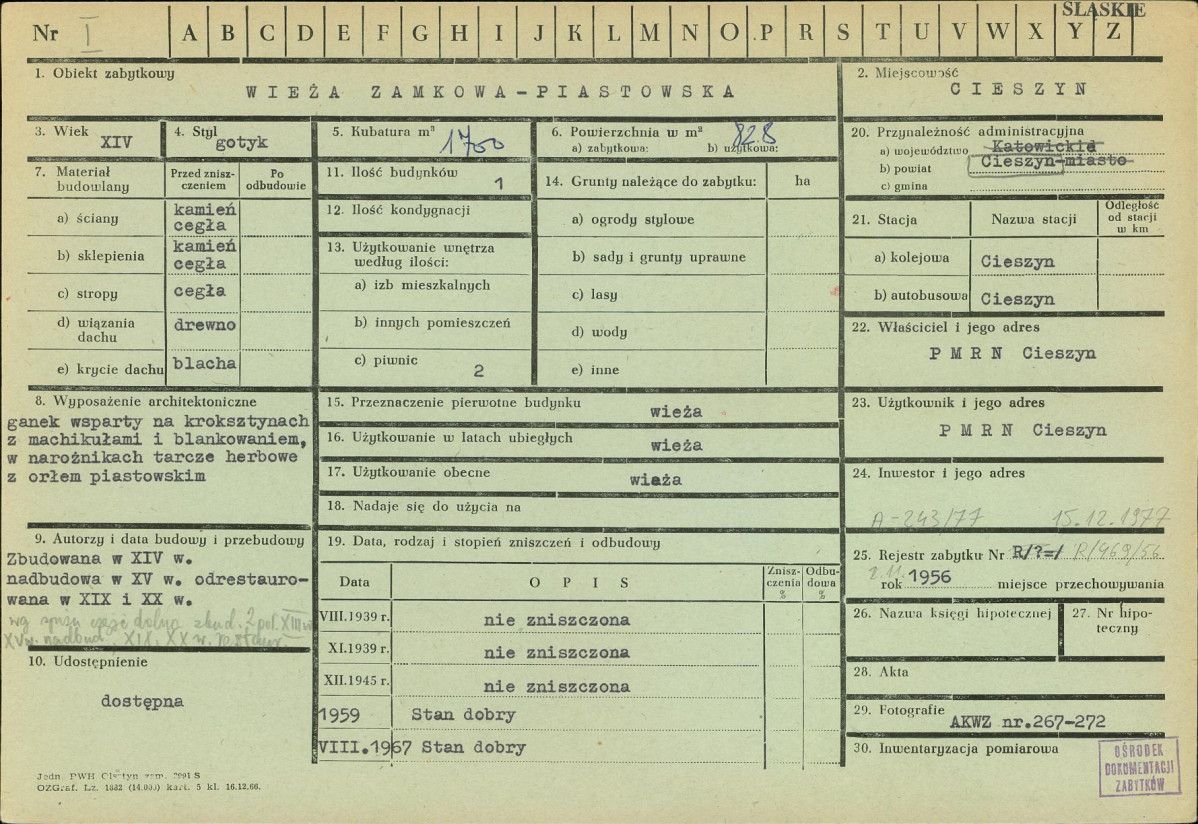 ŚLĄSKIE
Nr I A B C D E F G H I J K L M N O P R S T U V W X Y Z
1. Obiekt zabytkowy
WIEŻA ZAMKOWA-PIASTOWSKA
2. Miejscowość
CIESZYN
3. Wiek
XIV
4. Styl
gotyk
5. Kubatura m³
1700
6. Powierzchnia w m² 82.8
a) zabytkowa: b) użytkowa:
20. Przynależność administracyjna
a) województwo Katowickie
b) powiat Cieszyn-miasto
c) gmina
7. Materiał budowlany
Przed zniszczeniem
Po odbudowie
a) ściany kamień cegła
b) sklepienia kamień cegła
c) stropy cegła
d) wiązania dachu drewno
e) krycie dachu blacha
11. Ilość budynków
1
12. Ilość kondygnacji
13. Użytkowanie wnętrza
według ilości:
a) izb mieszkalnych
b) innych pomieszczeń
c) piwnic
2
14. Grunty należące do zabytku: ha
a) ogrody stylowe
b) sady i grunty uprawne
c) lasy
d) wody
e) inne
21. Stacja Nazwa stacji Odległość od stacji w km
a) kolejowa Cieszyn
b) autobusowa Cieszyn
22. Właściciel i jego adres
PMRN Cieszyn
8. Wyposażenie architektoniczne
ganek wsparty na kroksztynach
z machikułami i blankowaniem,
w narożnikach tarcze herbowe
z orłem piastowskim
15. Przeznaczenie pierwotne budynku
wieża
16. Użytkowanie w latach ubiegłych
wieża
17. Użytkowanie obecne
wieża
18. Nadaje się do użycia na
23. Użytkownik i jego adres
PMRN Cieszyn
24. Inwestor i jego adres
A-243/77 15.12.1977
9. Autorzy i data budowy i przebudowy
Zbudowana w XIV w.
nadbudowa w XV w. odrestauro-
wana w XIX i XX w.
wg spisu część dolna zbud. 2 poł. XIII w
XV w. nadbud. XIX, XX w. restaur.
10. Udostępnienie
dostępna
19. Data, rodzaj i stopień zniszczeń i odbudowy
Data OPIS Zniszczenia % Odbudowa %
VIII.1939 r. nie zniszczona
XI.1939 r. nie zniszczona
XII.1945 r. nie zniszczona
1959 Stan dobry
VIII.1967 Stan dobry
25. Rejestr zabytku Nr R/?=/ R/469/56
2.11.
rok 1956 miejsce przechowywania
26. Nazwa księgi hipotecznej
27. Nr hipo-
teczny
28. Akta
29. Fotografie
AKWZ nr.267-272
30. Inwentaryzacja pomiarowa
OŚRODEK
DOKUMENTACJI
ZABYTKÓW
Jedn. PWH Cieszyn zam. 2991 S
OZGraf. Lz. 1832 (14.000) kart. 5 kl. 16.12.66.